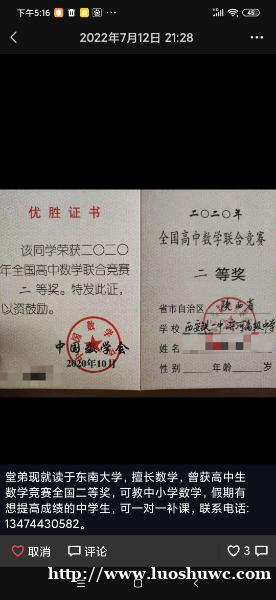 下午5:16
2022年7月12日 21:28
优胜证书
该同学荣获二〇二〇
年全国高中数学联合竞赛
二 等奖。特发此证,
以资鼓励。
中国数学会
2020年10月
二〇二〇年
全国高中数学联合竞赛
二 等奖
省市自治区 陕西省
学校 西安铁一中滨河高级中学
姓名
性别 年龄 岁
堂弟现就读于东南大学，擅长数学，曾获高中生
数学竞赛全国二等奖，可教中小学数学，假期有
想提高成绩的中学生，可一对一补课，联系电话:
13474430582。
取消 评论 3
http://www.luoshuwc.com